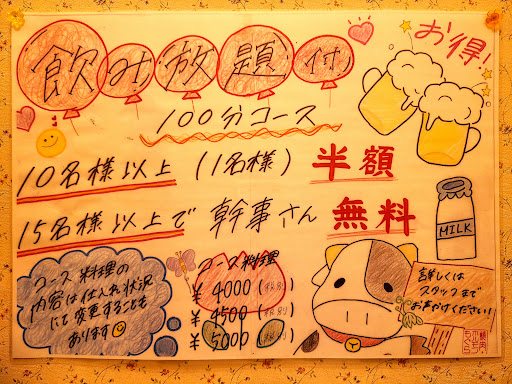 飲み放題付
お得!
100分コース
10名様以上 (1名様) 半額
15名様以上で 幹事さん 無料
MILK
コース料理の
内容は仕入れ状況
にて変更することも
あります
コース料理
¥4000(税別)
¥4500(税別)
¥5000(税別)
詳しくは
スタッフまで
お声がけください!